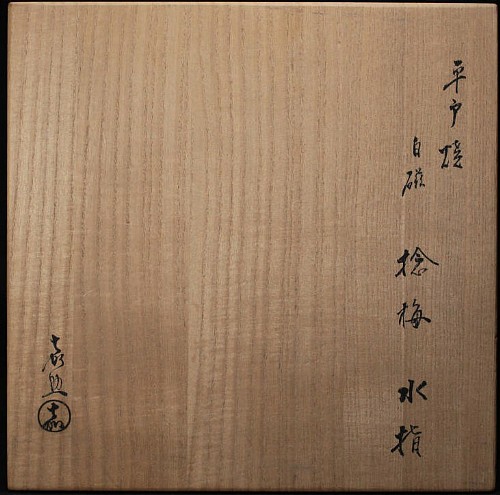 平戸焼
白磁 捻梅 水指
嘉助 嘉